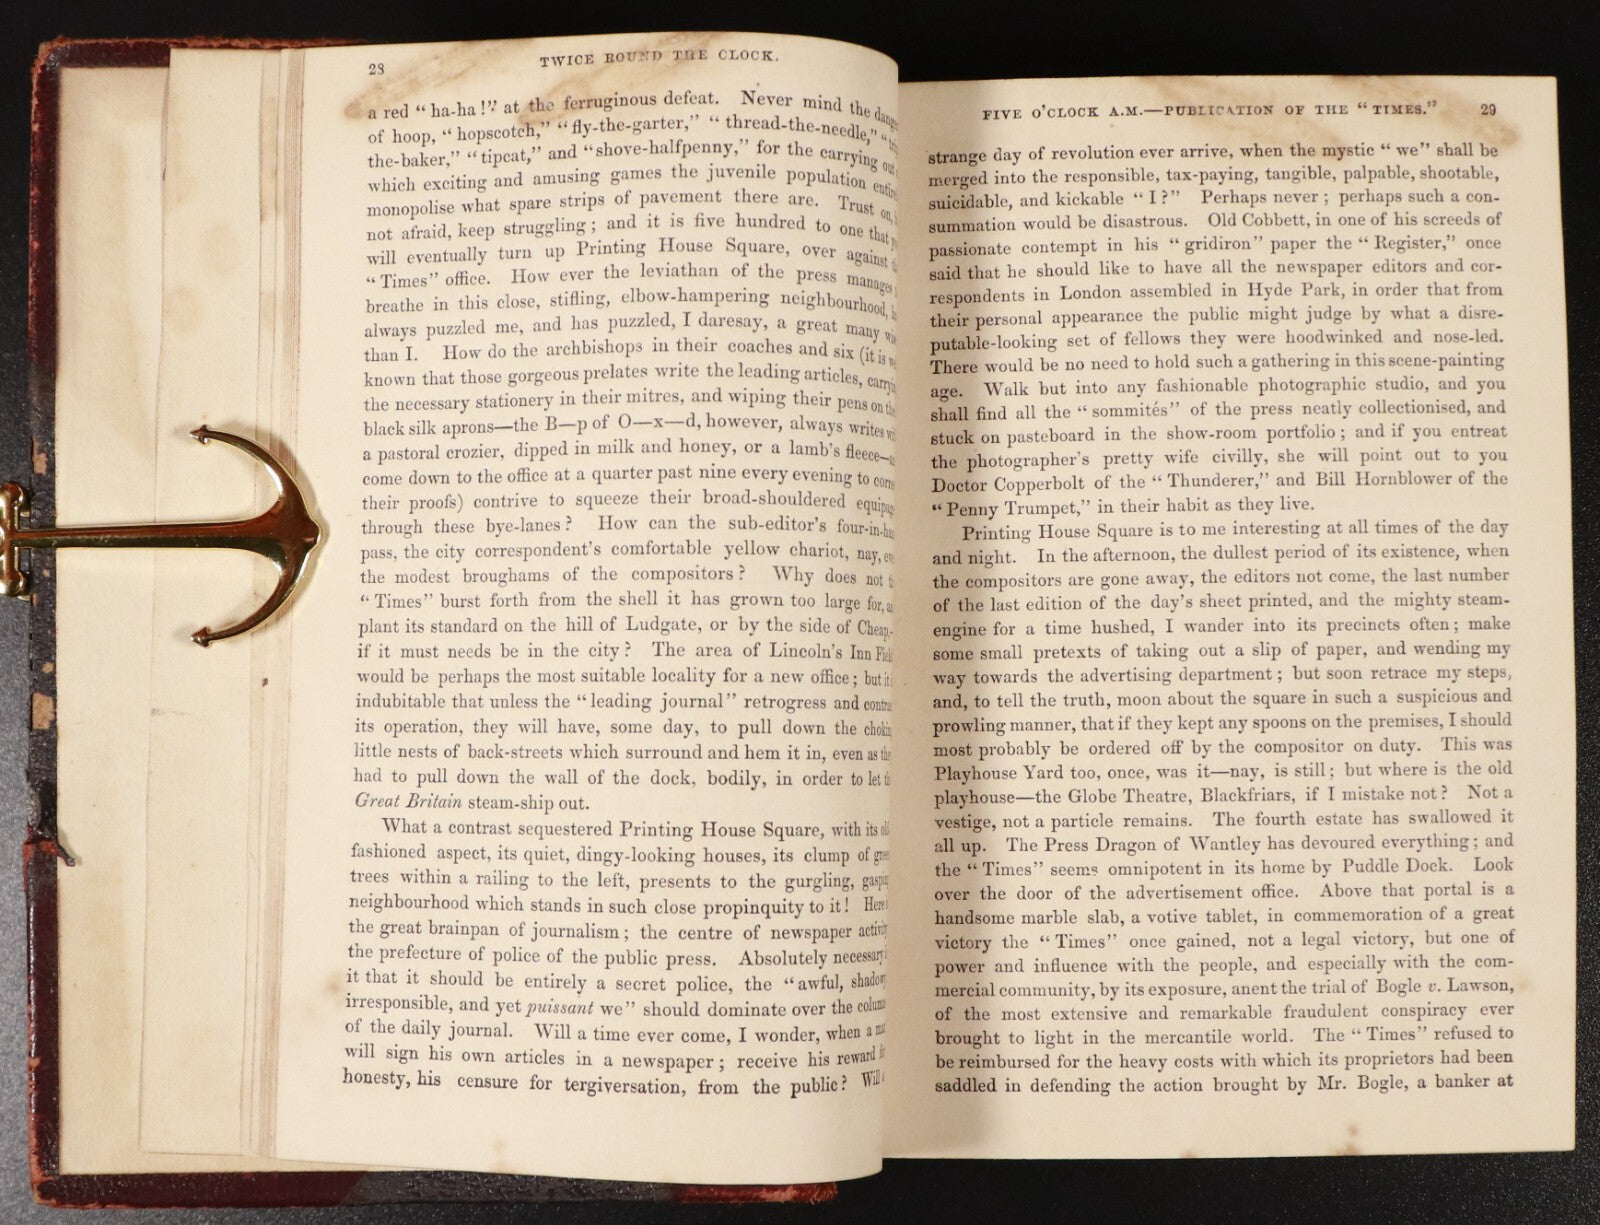 28
TWICE ROUND THE CLOCK.
a red “ha-ha!” at the ferruginous defeat. Never mind the
of hoop, “hopscotch,” “fly-the-garter,” “thread-the-needle,”
the-baker,” “tipcat,” and “shove-halfpenny,” for the carrying out
which exciting and amusing games the juvenile population
monopolise what spare strips of pavement there are. Trust on,
not afraid, keep struggling; and it is five hundred to one that
will eventually turn up Printing House Square, over against
“Times” office. How ever the leviathan of the press manages
breathe in this close, stifling, elbow-hampering neighbourhood,
always puzzled me, and has puzzled, I daresay, a great many
than I. How do the archbishops in their coaches and six (it is
known that those gorgeous prelates write the leading articles,
the necessary stationery in their mitres, and wiping their pens on
black silk aprons—the B—p of O—x—d, however, always writes
a pastoral crozier, dipped in milk and honey, or a lamb's fleece—
come down to the office at a quarter past nine every evening to
their proofs) contrive to squeeze their broad-shouldered
through these bye-lanes? How can the sub-editor's four-in-
pass, the city correspondent's comfortable yellow chariot, nay,
the modest broughams of the compositors? Why does not
“Times” burst forth from the shell it has grown too large for,
plant its standard on the hill of Ludgate, or by the side of Cheap,—
if it must needs be in the city? The area of Lincoln's Inn
would be perhaps the most suitable locality for a new office; but it
indubitable that unless the “leading journal” retrogress and
its operation, they will have, some day, to pull down the
little nests of back-streets which surround and hem it in, even as
had to pull down the wall of the dock, bodily, in order to let
Great Britain steam-ship out.
What a contrast sequestered Printing House Square, with its
fashioned aspect, its quiet, dingy-looking houses, its clump of
trees within a railing to the left, presents to the gurgling,
neighbourhood which stands in such close propinquity to it! Here
the great brainpan of journalism; the centre of newspaper
the prefecture of police of the public press. Absolutely necessary
it that it should be entirely a secret police, the “awful,
irresponsible, and yet puissant we” should dominate over the
of the daily journal. Will a time ever come, I wonder, when a
will sign his own articles in a newspaper; receive his reward
honesty, his censure for tergiversation, from the public? Will
FIVE O'CLOCK A.M.—PUBLICATION OF THE “TIMES.”
29
strange day of revolution ever arrive, when the mystic “we” shall be
merged into the responsible, tax-paying, tangible, palpable, shootable,
suicidable, and kickable “I?” Perhaps never; perhaps such a con-
summation would be disastrous. Old Cobbett, in one of his screeds of
passionate contempt in his “gridiron” paper the “Register,” once
said that he should like to have all the newspaper editors and cor-
respondents in London assembled in Hyde Park, in order that from
their personal appearance the public might judge by what a disre-
putable-looking set of fellows they were hoodwinked and nose-led.
There would be no need to hold such a gathering in this scene-painting
age. Walk but into any fashionable photographic studio, and you
shall find all the “sommités” of the press neatly collectionised, and
stuck on pasteboard in the show-room portfolio; and if you entreat
the photographer's pretty wife civilly, she will point out to you
Doctor Copperbolt of the “Thunderer,” and Bill Hornblower of the
“Penny Trumpet,” in their habit as they live.
Printing House Square is to me interesting at all times of the day
and night. In the afternoon, the dullest period of its existence, when
the compositors are gone away, the editors not come, the last number
of the last edition of the day's sheet printed, and the mighty steam-
engine for a time hushed, I wander into its precincts often; make
some small pretexts of taking out a slip of paper, and wending my
way towards the advertising department; but soon retrace my steps,
and, to tell the truth, moon about the square in such a suspicious and
prowling manner, that if they kept any spoons on the premises, I should
most probably be ordered off by the compositor on duty. This was
Playhouse Yard too, once, was it—nay, is still; but where is the old
playhouse—the Globe Theatre, Blackfriars, if I mistake not? Not a
vestige, not a particle remains. The fourth estate has swallowed it
all up. The Press Dragon of Wantley has devoured everything; and
the “Times” seems omnipotent in its home by Puddle Dock. Look
over the door of the advertisement office. Above that portal is a
handsome marble slab, a votive tablet, in commemoration of a great
victory the “Times” once gained, not a legal victory, but one of
power and influence with the people, and especially with the com-
mercial community, by its exposure, anent the trial of Bogle v. Lawson,
of the most extensive and remarkable fraudulent conspiracy ever
brought to light in the mercantile world. The “Times” refused to
be reimbursed for the heavy costs with which its proprietors had been
saddled in defending the action brought by Mr. Bogle, a banker at